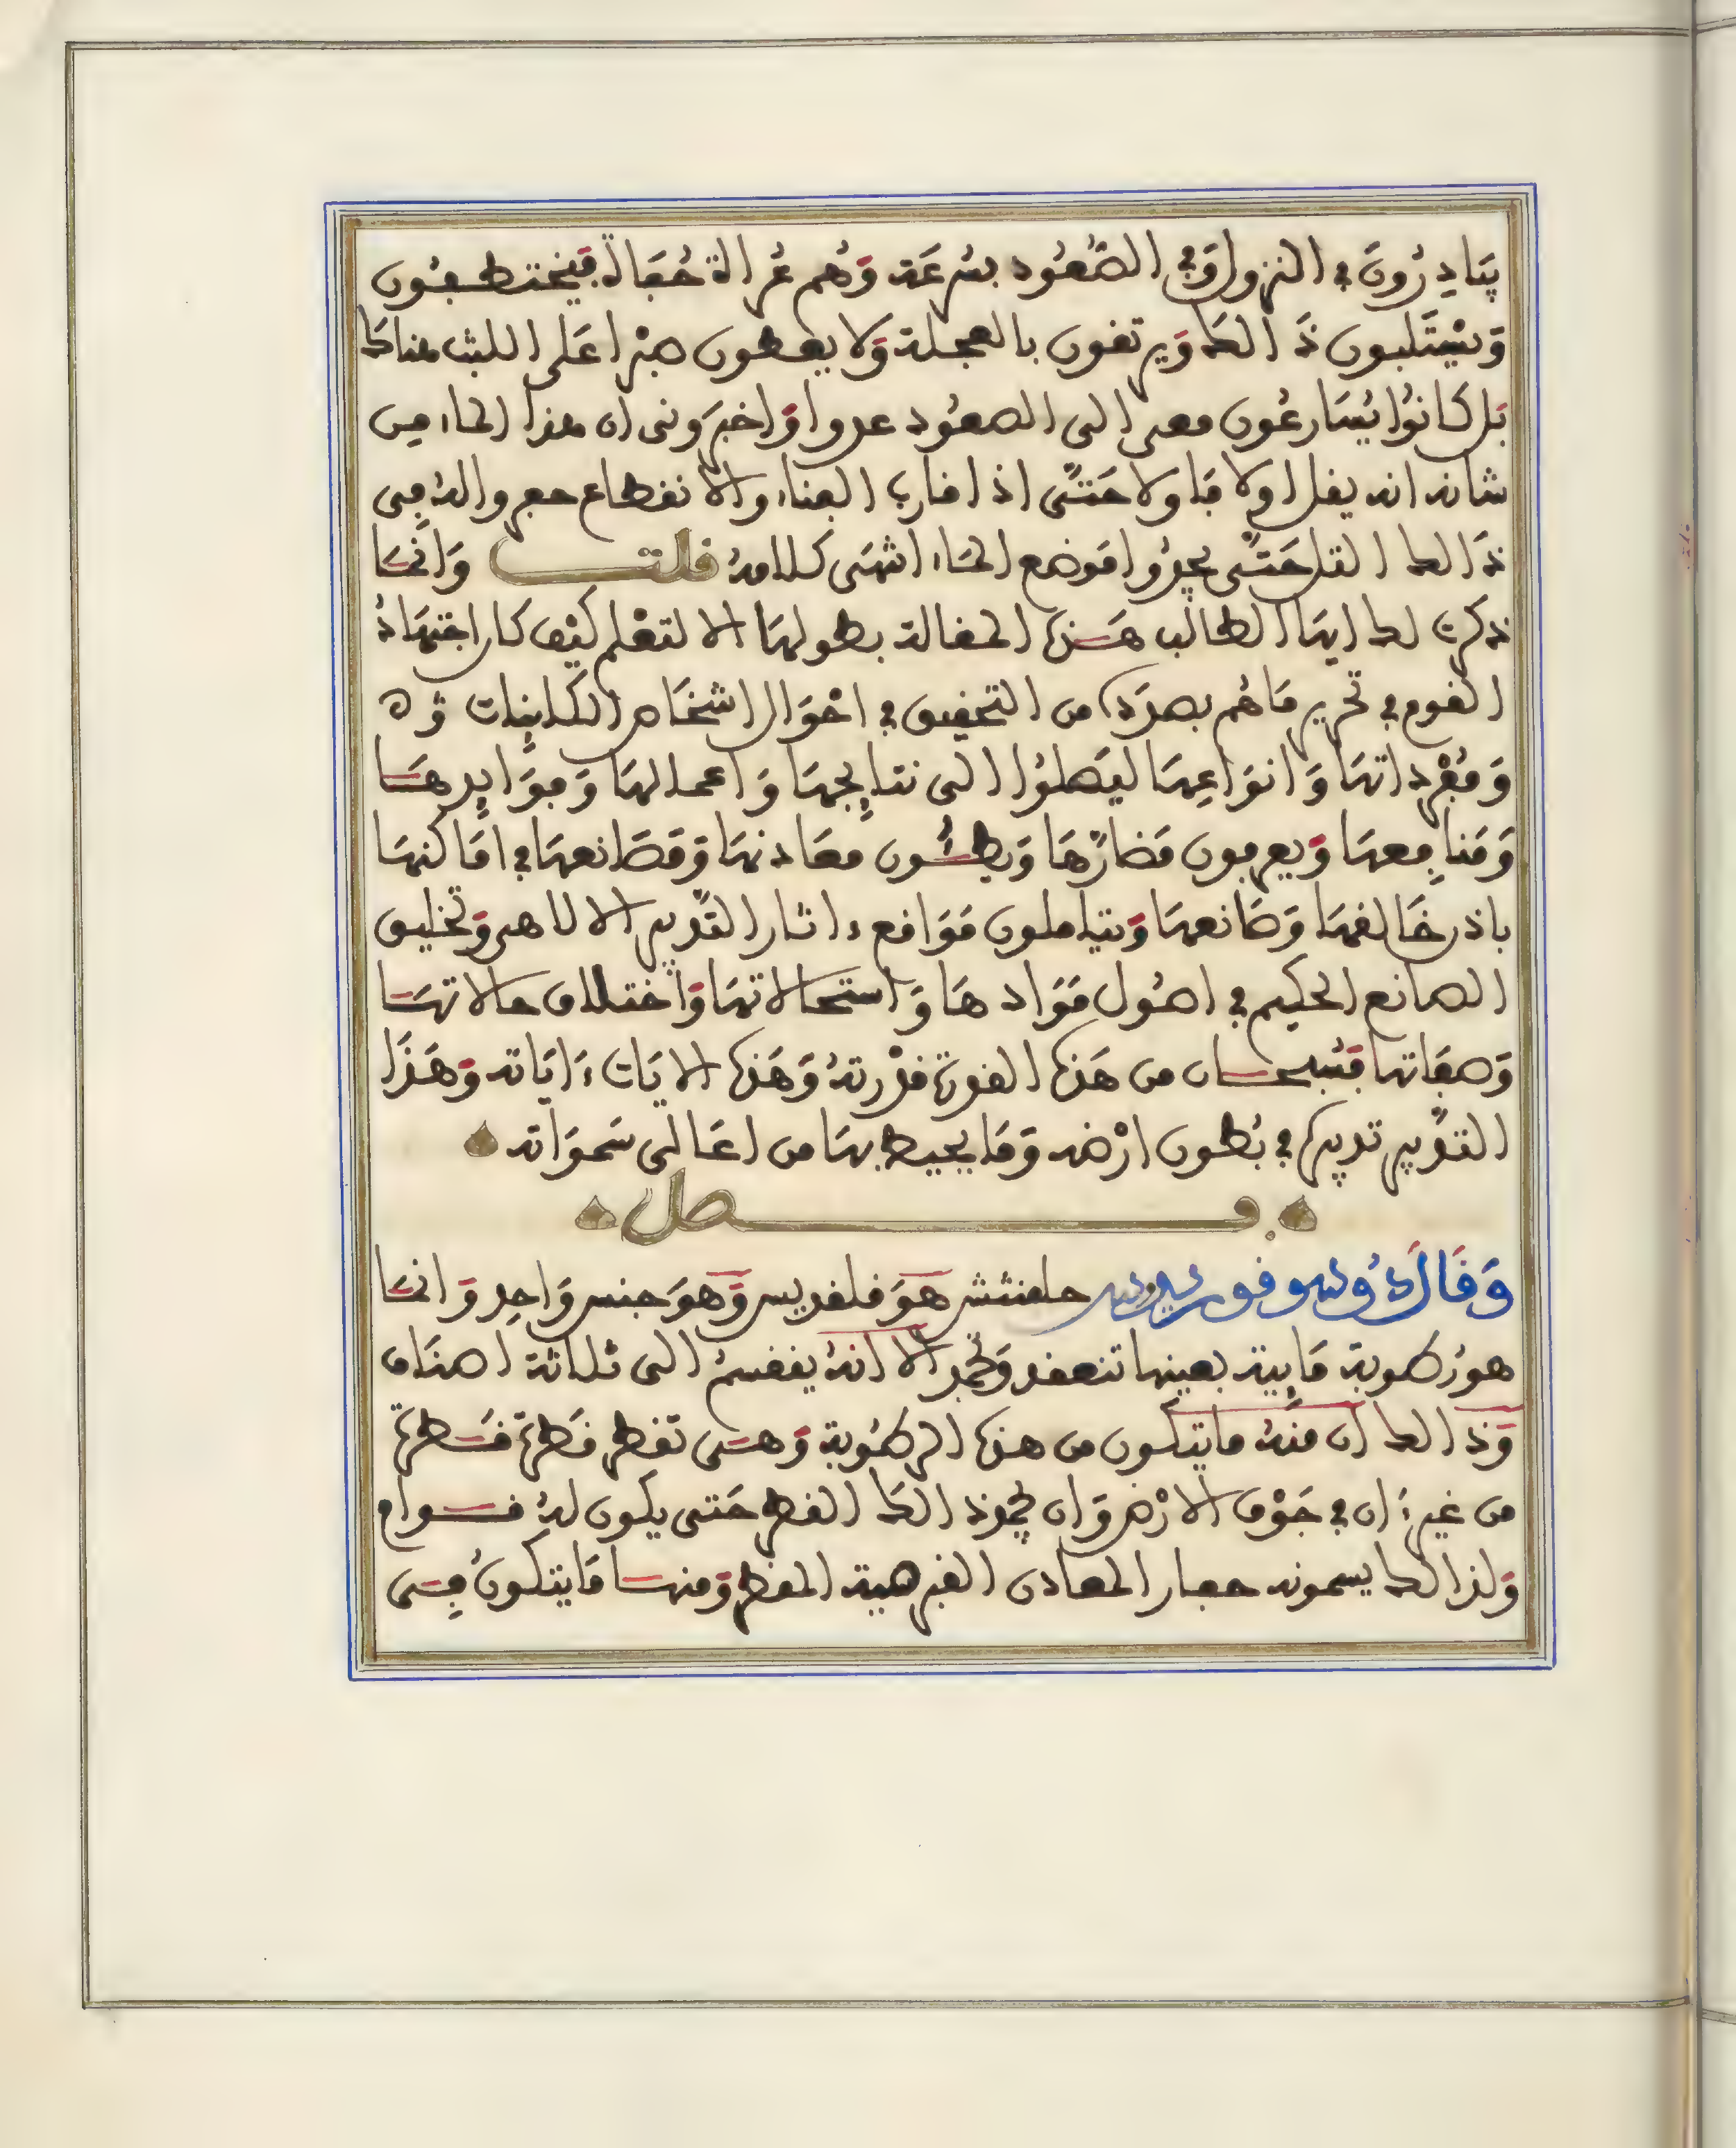 يتادرون في النزول وفي الصُّعُود بسرعَة وَهُم عُراة حُفاة فيختطفون
وَيسْتَلبون ذَالك وَيرتقون بالعجلة وَلا يعطون صبْرا عَلى اللبث هناك
بَل كانوا يُسَارعُون معى الى الصعُود عدوا وَاخبرَونى ان هذا الماء من
شانه انه يقل اولا فاولا حَتّى اذا قارب الفناء والانقطاع حفروا له فى
ذَالك التل حَتّى يجدُوا مَوضع المَاء انتهَى كلامهُ قلت وَانّما
ذكرت لك ايهَا الطالب هَذه المقالة بطولهَا الا لتعْلم كيْف كان اجتهَادُ
القوم في تحرير مَا هُم بصدَده من التحقيق في احْوَال اشخَاص الكاينات
وَمُفْرداتهَا وَانوَاعِهَا ليَصلوُا الى نتايجهَا وَاعمالهَا وَفوَايدهَا
وَمَنافِعهَا وَيعرفون مَضارّهَا وَيطئون معَادنهَا وَمَصَانعهَا في امَاكنهَا
باذن خَالقهَا وَصَانعهَا وَيتاملون مَوَاقع ءاثار التدّبير الالاهى وَتخليق
الصانع الحكيم في اصُول مَوَادهَا وَاستحالاتهَا وَاختلاف حالاتهَا
وَصفَاتها فسُبحان من هَذه القوة قدْرتهُ وَهَذه الايَات ءَايَاته وَهَذَا
التدّبير تدبيره في بُطون ارْضه وَمَا يحيط بهَا من اعَالى سَموَاته
فصل
وَقَالَ دُوسوفوريدوس حلقنتش هوَ قلقديس وَهوَ جنس وَاحِد وَانمَا
هو رُطوبة مَايية بعينها تنعقد وَتجمد الا انهُ ينقسمُ الى ثلاثة اصنَاف
وَذالك ان منهُ ما يتكون من هذه الرطُوبة وَهَى تقطر قَطرة قَطرة
من غير ان في جَوْف الارْض وَان يجمد ذالك القطر حَتى يكون لهُ قوام
وَلذالك يسمونه حفار المعادن القبرهية المقطر وَمنهَا مَا يتكونُ فِى